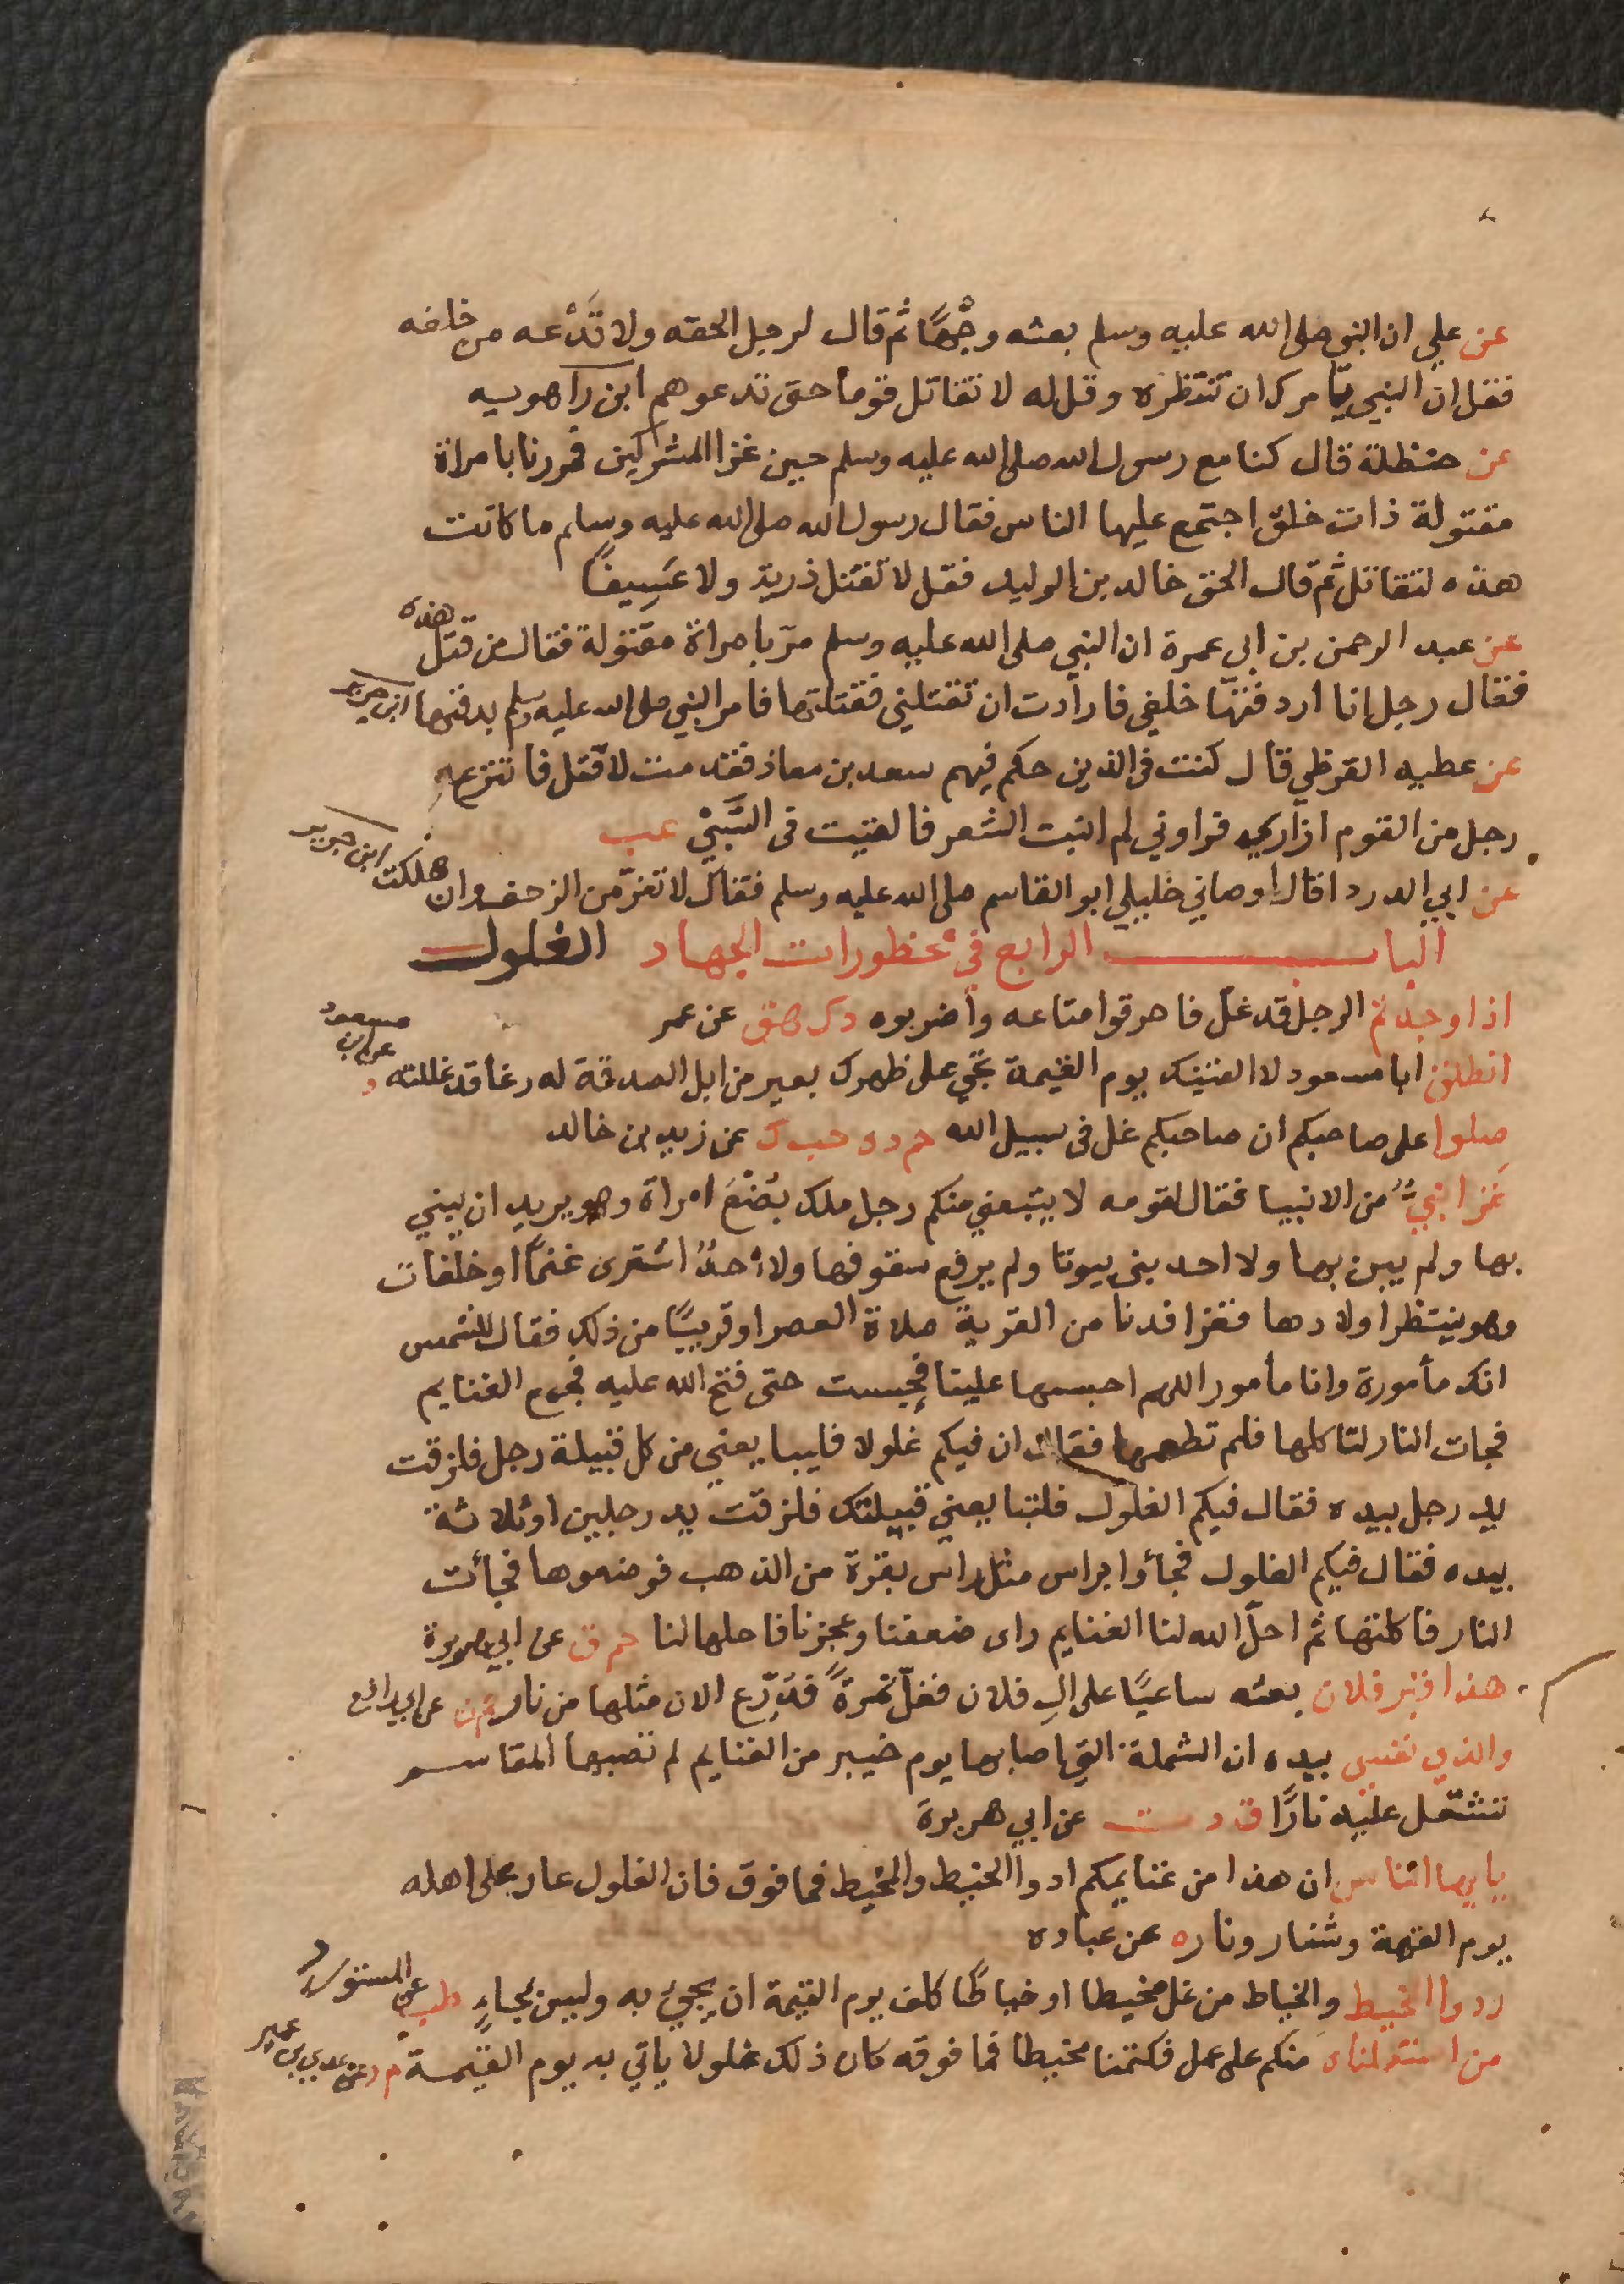 عن علي ان النبي صلى الله عليه وسلم بعثه وجْهًا ثم قال لرجل الحقه ولا تَدْعه من خلفه
فقل ان النبي يامرك ان تنتظره وقل له لا تقاتل قوما حتى تدعوهم ابن راهويه
عن حنظلة قال كنا مع رسول الله صلى الله عليه وسلم حين غزا المشركين فمررنا بامراة
مقتولة ذات خلق اجتمع عليها الناس فقال رسول الله صلى الله عليه وسلم ما كانت
هذه لتقاتل ثم قال الحق خالد بن الوليد فقل لا تقتل ذرية ولا عَسِيفًا
عن عبد الرحمن بن ابي عمرة ان النبي صلى الله عليه وسلم مرّ بامراة مقتولة فقال من قتل هذه
فقال رجل انا اردفتها خلفي فارادت ان تقتلني فقتلتها فامر النبي صلى الله عليه وسلم بدفنها ابن جرير
عن عطيه القرظي قال كنت في الذين حكم فيهم سعد بن معاذ فقدمت لاقتل فانتزع
رجل من القوم ازاري فراوني لم انبت الشعر فالقيت في السَّبْيِ عب
عن ابي الدردا قال اوصاني خليلي ابو القاسم صلى الله عليه وسلم فقال لا تفرّ من الزحف وان هلكت ابن جرير
الباب الرابع في محظورات الجهاد الغلول
اذا وجدتم الرجل قد غلّ فاحرقوا متاعه واضربوه د ك هق عن عمر
انطلق ابا مسعود لا الفينك يوم القيمة تجي على ظهرك بعير من ابل الصدقة له رغا قد غللته د عن ابن مسعود
صلوا على صاحبكم ان صاحبكم غل في سبيل الله حم د ه حب ك عن زيد بن خالد
غزا نبيٌّ من الانبيا فقال لقومه لا يتبعني منكم رجل ملك بُضْعَ امراة وهو يريد ان يبني
بها ولم يبن بها ولا احد بنى بيوتا ولم يرفع سقوفها ولا احدٌ اشترى غنمًا او خلفات
وهو ينتظر اولادها فغزا فدنا من القرية صلاة العصر او قريبًا من ذلك فقال للشمس
انك مأمورة وانا مأمور اللهم احبسها علينا فحبست حتى فتح الله عليه فجمع الغنايم
فجات النار لتاكلها فلم تطعمها فقال ان فيكم غلولا فليبايعني من كل قبيلة رجل فلزقت
يد رجل بيده فقال فيكم الغلول فلتبايعني قبيلتك فلزقت يد رجلين او ثلاثة
بيده فقال فيكم الغلول فجأوا براس مثل راس بقرة من الذهب فوضعوها فجأت
النار فاكلتها ثم احلّ الله لنا الغنايم راى ضعفنا وعجزنا فاحلها لنا حم ق عن ابي هريرة
هذا قبر فلان بعثه ساعيًا على ال فلان فغلّ نمرةً فدُرّع الان مثلها من نار حم ن عن ابي رافع
والذي نفسي بيده ان الشملة التي اصابها يوم خيبر من الغنايم لم تصبها المقاسم
تشتعل عليه نارًا ق د ن عن ابي هريرة
يايها الناس ان هذا من غنايمكم ادوا الخيط والمخيط فما فوق فان الغلول عار على اهله
يوم القيمة وشنار ونار ه عن عباده
ردوا المخيط والخياط من غل مخيطا او خياطًا كلف يوم القيمة ان يجيئ به وليس بجاءٍ طب عن المستورد
من استعملناه منكم على عمل فكتمنا مخيطا فما فوقه كان ذلك غلولا ياتي به يوم القيمة م د عن عدي بن عمير